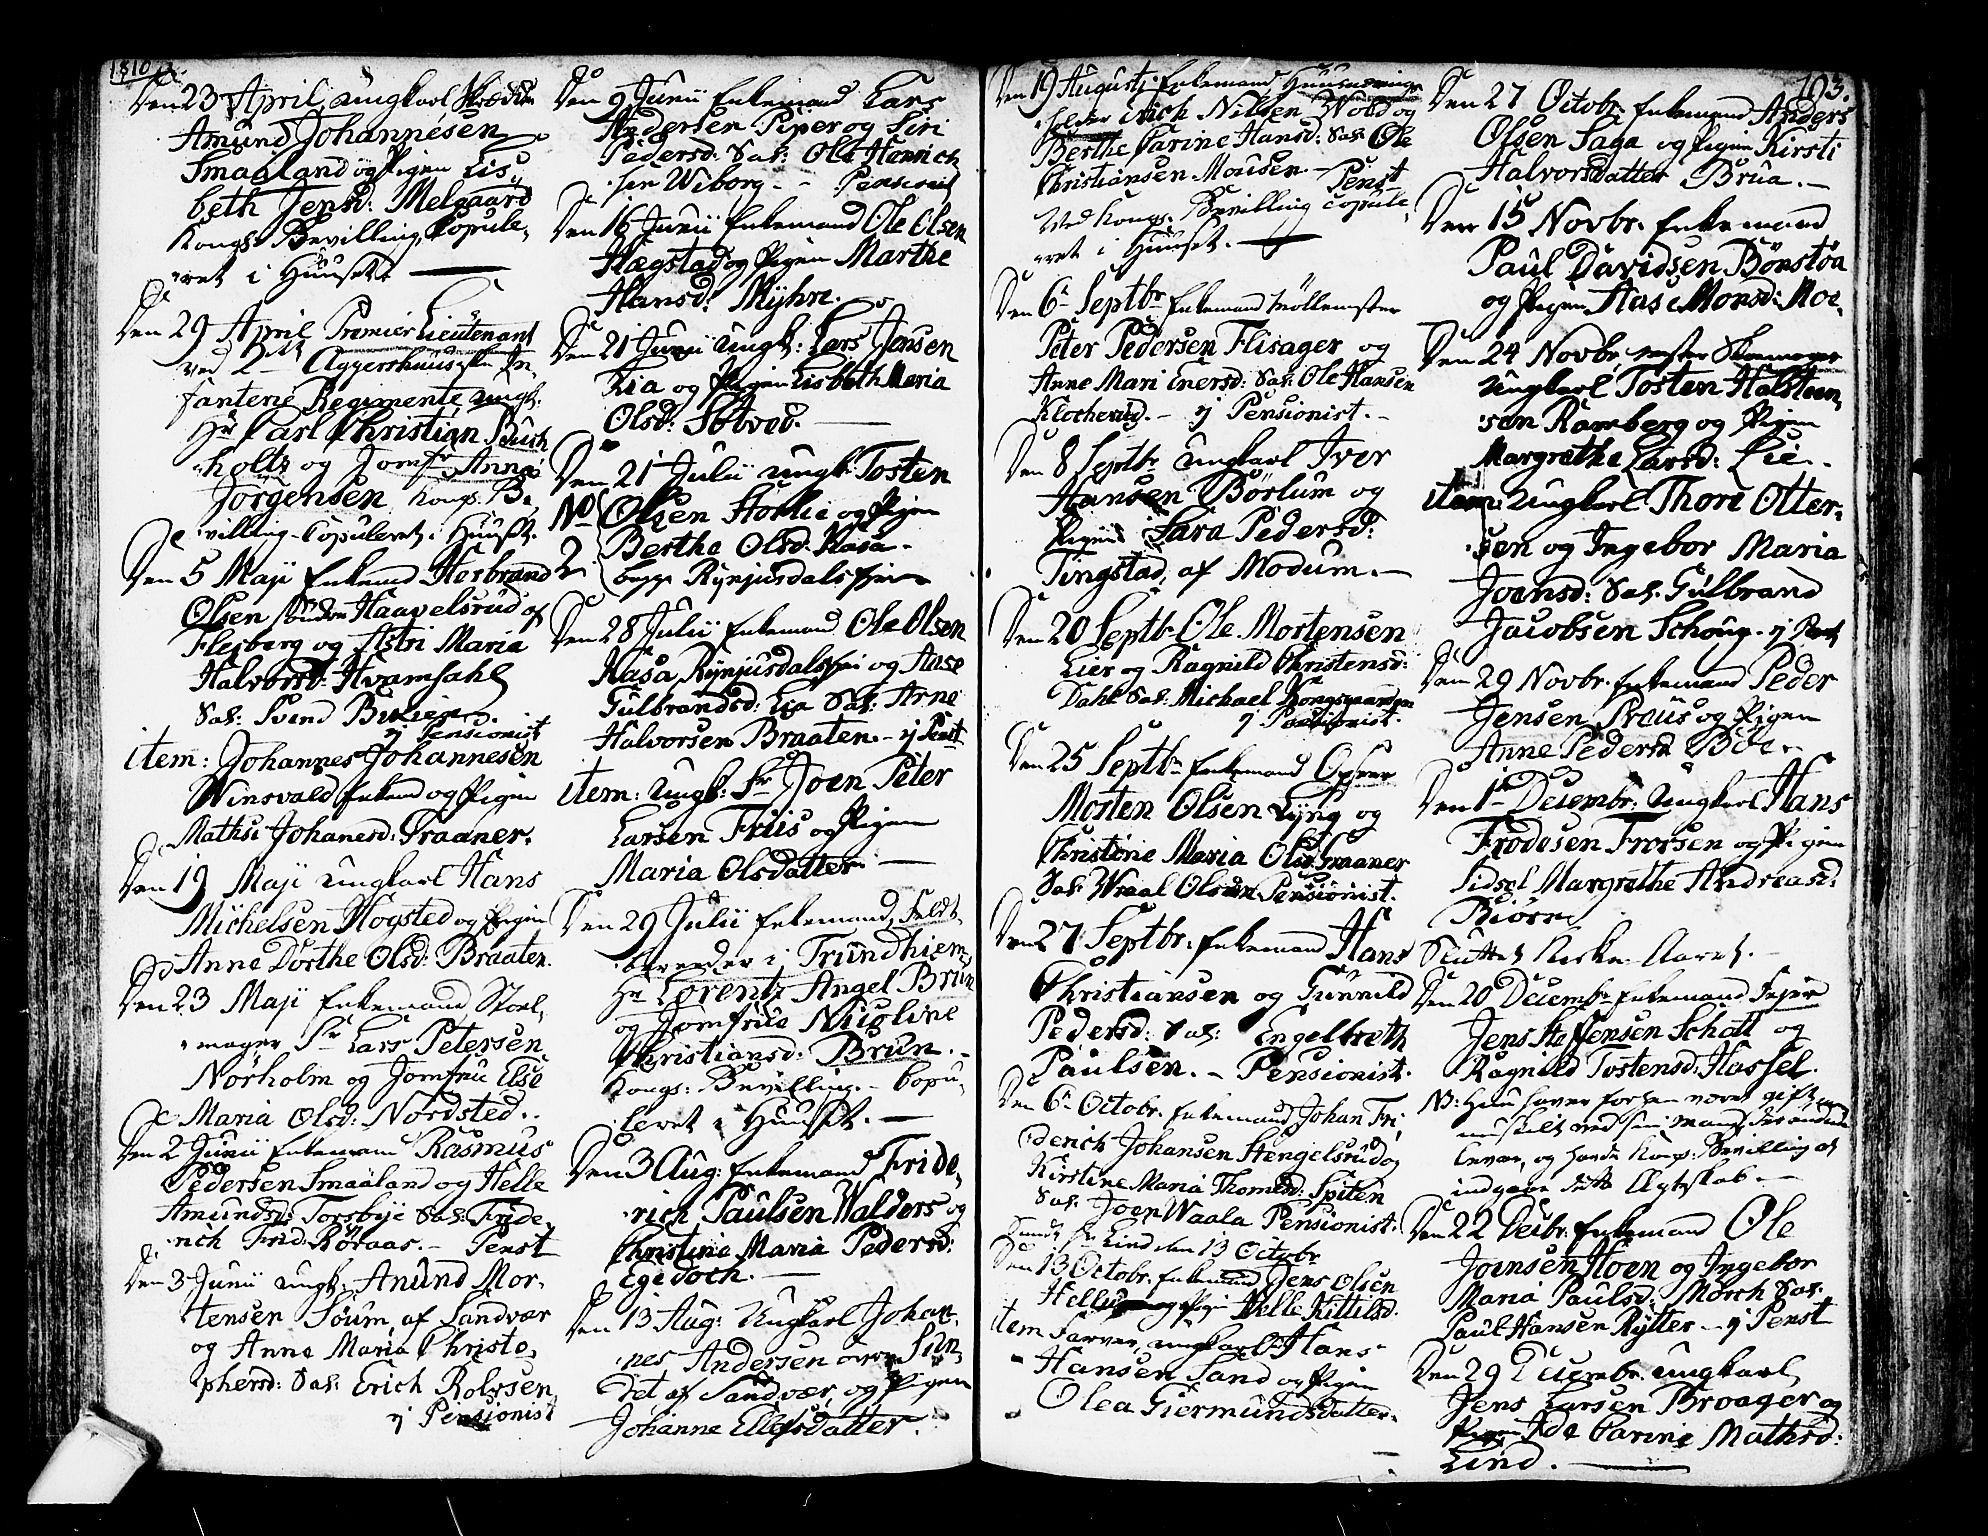 1810
Den 23 April Ungkarl
Amund Johannesen
Smaaland og Pigen Lis,,
beth Jensd: Melgaard
Kongs: Bevilling, Copule,
ret i Huuset.
Den 29 April Premier Lieutenant
ved 2det Aggershuusiske In,
fanterie Regimente, ungk:
Hr Carl Christian Buch
holtz og Jomfr Anna
Jörgensen Kongs: Be,
villing Copuleret i Huuset.
Den 5 Maji Enkemd Herbrand
Olsen søndre Haavelsrud af
Flesberg og Astri Maria
Halvorsd: Hvamsahl
Sal: Svend
ej Pensionist
item: Johannes Johannesen
Winsvald Enkemd og Pigen
Mathse Johanesd: Praaner.
Den 19 Maji Ungkarl Hans
Michelsen Wogsted og Pigen
Anne Dorthe Olsd: Braaten.
Den 23 Maji Enkemand Stoel,
mager Sr Lars Petersen
Nørholm og Jomfrue Else
Maria Olsd: Nordsted.
Den 2 Junii Enkemand Rasmus
Pedersen Smaaland og Helle
Amundsd: Torsbye Sal: Fride,
rich Frid: Röraas. – Penst
Den 3 Junii ungk: Anund Mor,
tensen Söum, af Sandvær
og Anne Maria Christo,
phersd: Sal: Erich Rolvsen
ej Pensionist
Den 9 Junii Enkemand Lars
Andersen Piper og Siri
Pedersd: Sal: Ole Henrich
sen Wiborg. – Pensionist
Den 16 Junii Enkemand Ole Olsen
Hægstad og Pigen Marthe
Hansd: Myhre.
Den 21 Junii Ungk: Lars Jensen
Lia og Pigen Lisbeth Maria
Olsd: Sötved.
Den 21 Julii ungk: Tosten
No Olsen Hørlie og Pigen
2 Berthe Olsd. Kasa.
begge Rynjusdals
Den 28 Julii Enkemand Ole Olsen
Kasa, Rynjusdals og Aase
Gulbrandsd: Lia Sal: Arne
Halvorsen Braaten. – ej Penst
item: ungk: Sr Joen Peter
Larsen Friis og Pigen
Maria Olsdatter. –
Den 29 Julii Enkemand, Feldt,
bereeder i Trundhiem
Hr Lorentz Angel Brun
og Jomfrue Nicoline
Christiansd: Brun. –
Kongs: Bevilling. – Copu,
leret i Huuset. –
Den 3 Aug: Enkemand Fride,
rich Paulsen Walders og
Christine Maria Pedersd:
Egedoch. –
Den 13 Aug: Ungkarl Johan,
nes Andersen Sun,
det af Sandvær, og Pigen
Johanne Ellefsdatter.
103.
Den 19 Augusti. Enkemand,
Erich Nilsen Wold og
Berthe Carine Hansd: Sal: Ole
Christiansen Mousen – Penst
Ved Kongs: Bevilling Copule,
ret i Huuset. –
Den 6te Septbr Enkemand Møllemester
Peter Pedersen Flisager og
Anne Mari Enersd: Sal: Ole Hansen
Klocherud. – ej Pensionist. –
Den 8 Septbr Ungkarl Iver
Hansen Börlum og
Pigen Sara Pedersd:
Tingstad, af Modum. –
Den 20 Septbr Ole Mortensen
Lier og Ragnild Christensd:
Dahl Sal: Michael
ej Pensionist.
Den 25 Septbr Enkemand
Morten Olsen Lyng og
Christine Maria Olsd: Praaner
Sal: Wraal Olsen Pensionist.
Den 27 Septbr: Enkemand Hans
Christiansen og Gunnild
Pedersd: Sal: Engelbreth
Paulsen. – Pensionist.
Den 6te Octobr. Enkemand Johan Fri,
derich Johansen Stengelsrud og
Kirstine Maria Thomesd: Spiten
Sal: Joen Waala Pensionist.
Lind den 13 Octobr
Den 13 Octobr. Enkemand Jens Olsen
Helle Kittilsd.
item Farver, ungkarl Hans
Hansen Sand og Pigen
Olea Giermundsdatter.
Den 27 Octobr. Enkemand Anders
Olsen Saga og Pigen Kirsti
Halvorsdatter Brua. –
Den 15 Novbr. Enkemand
Paul Davidsen Bönstöa
og Pigen Aase Monsd: Moe.
Den 24 Novbr. mester Skoemager
Ungkarl Tosten Halsteen,
sen Ramberg og Pigen
Margrethe Larsd: Lie.
item. Ungkarl Thore Otter,
sen og Ingebor Maria
Joensd: Sal. Gulbrand
Jacobsen Schoug. ej Penst
Den 29 Novbr. Enkemand Peder
Jensen Preus og Pigen
Anne Pedersd Böe. –
Den 1te Decembr: Ungkarl Hans
Frodesen Frorsen og Pigen
Sidsel Margrethe Andreasd:
Biørn
Sluttet Kirke Aaret. –
Den 20 Decembr Enkemand
Jens Steffensen Schatt og
Ragnild Tostensd: Hassel.
NB: Hun haver forhen været gift
er skilt ved sin mand,
lever, og havde Kongs: Bevilling at
indgaae dette Ægteskab. –
Den 22 Decbr. Enkemand Ole
Joensen Hoen og Ingebor
Maria Paulsd. Mørch Sal.
Paul Hansen Rytter – ej Penst
Den 29 Decembr. Ungkarl,
Jens Larsen Broager og
Pigen Ide Carine Mathisd:
Lind. –